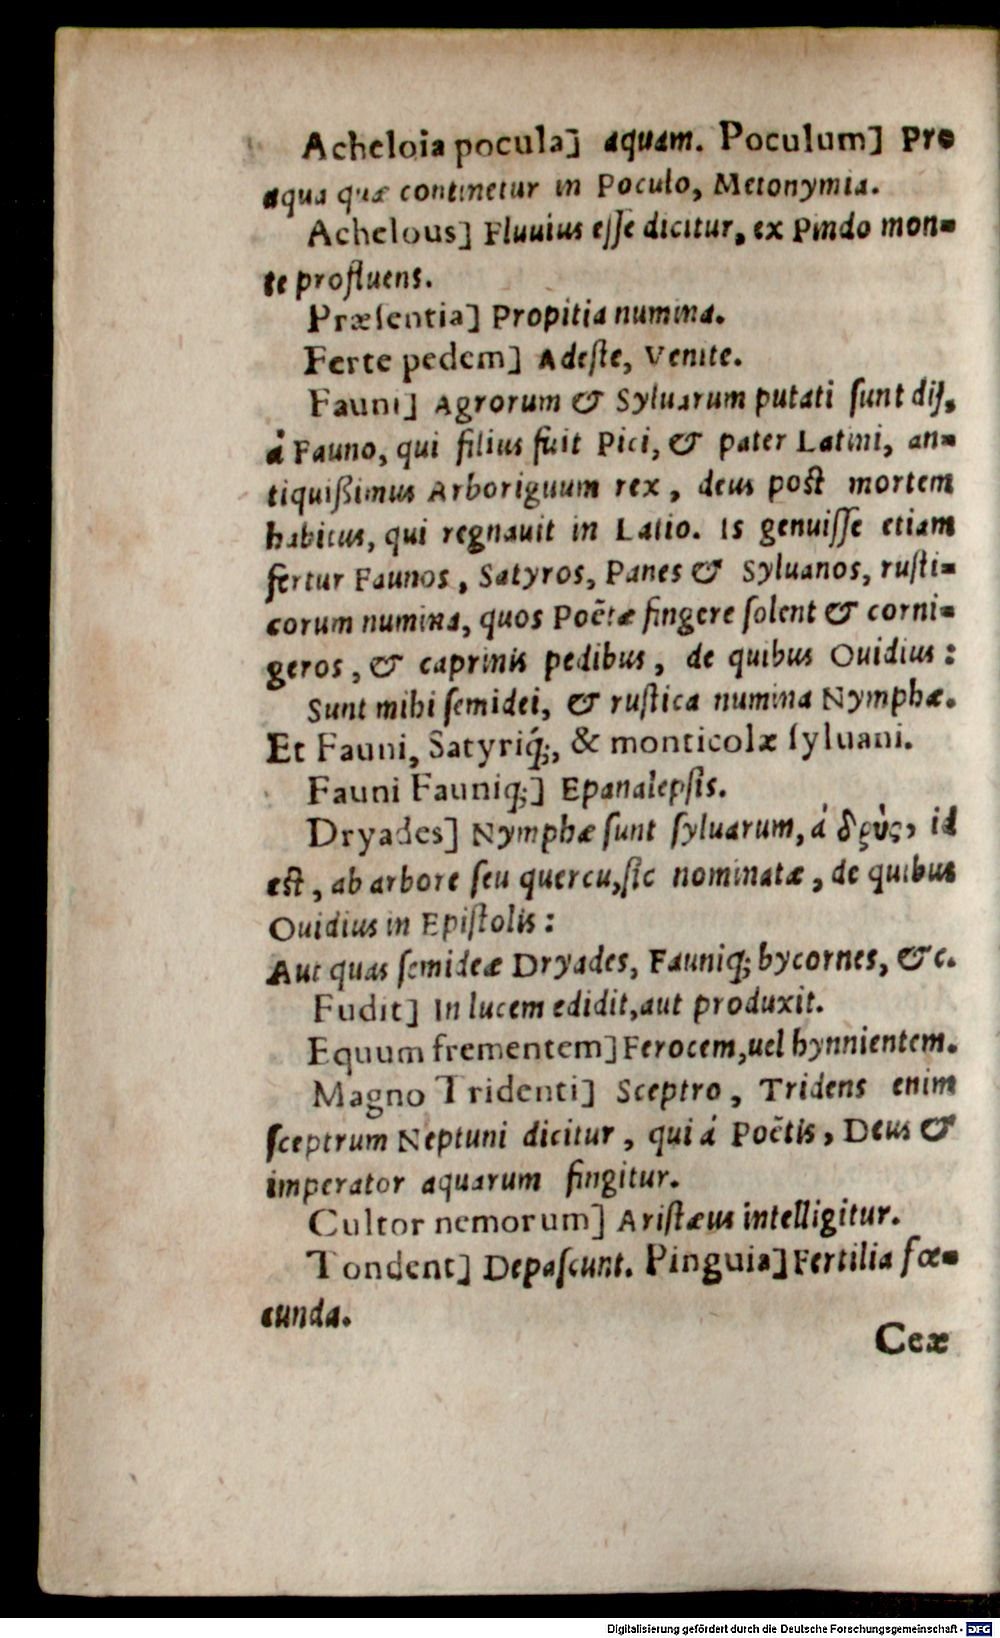 Acheloia pocula] aquam. Poculum] Pro
aqua quæ continetur in Poculo, Metonymia.
Achelous] Fluuius eſſe dicitur, ex Pindo mon-
te profluens.
Præſentia] Propitia numina.
Ferte pedem] Adeſte, Venite.
Fauni] Agrorum & Syluarum putati ſunt dij,
á Fauno, qui filius fuit Pici, & pater Latini, an-
tiquißimus Arboriguum rex, deus poſt mortem
habitus, qui regnauit in Latio. Is genuiſſe etiam
fertur Faunos, Satyros, Panes & Syluanos, ruſti-
corum numina, quos Poëtæ fingere ſolent & corni-
geros, & caprinis pedibus, de quibus Ouidius:
Sunt mihi ſemidei, & ruſtica numina Nymphæ.
Et Fauni, Satyriq́;, & monticolæ ſyluani.
Fauni Fauniq;] Epanalepſis.
Dryades] Nymphæ ſunt ſyluarum, á δρὺς, id
eſt, ab arbore ſeu quercu, ſic nominatæ, de quibus
Ouidius in Epiſtolis:
Aut quas ſemideæ Dryades, Fauniq; bycornes, &c.
Fudit] In lucem edidit, aut produxit.
Equum frementem] Ferocem, uel hynnientem.
Magno Tridenti] Sceptro, Tridens enim
ſceptrum Neptuni dicitur, qui á Poëtis, Deus &
imperator aquarum fingitur.
Cultor nemorum] Ariſtæus intelligitur.
Tondent] Depaſcunt. Pinguia] Fertilia fœ-
cunda.
Ceæ
Digitalisierung gefördert durch die Deutsche Forschungsgemeinschaft - DFG